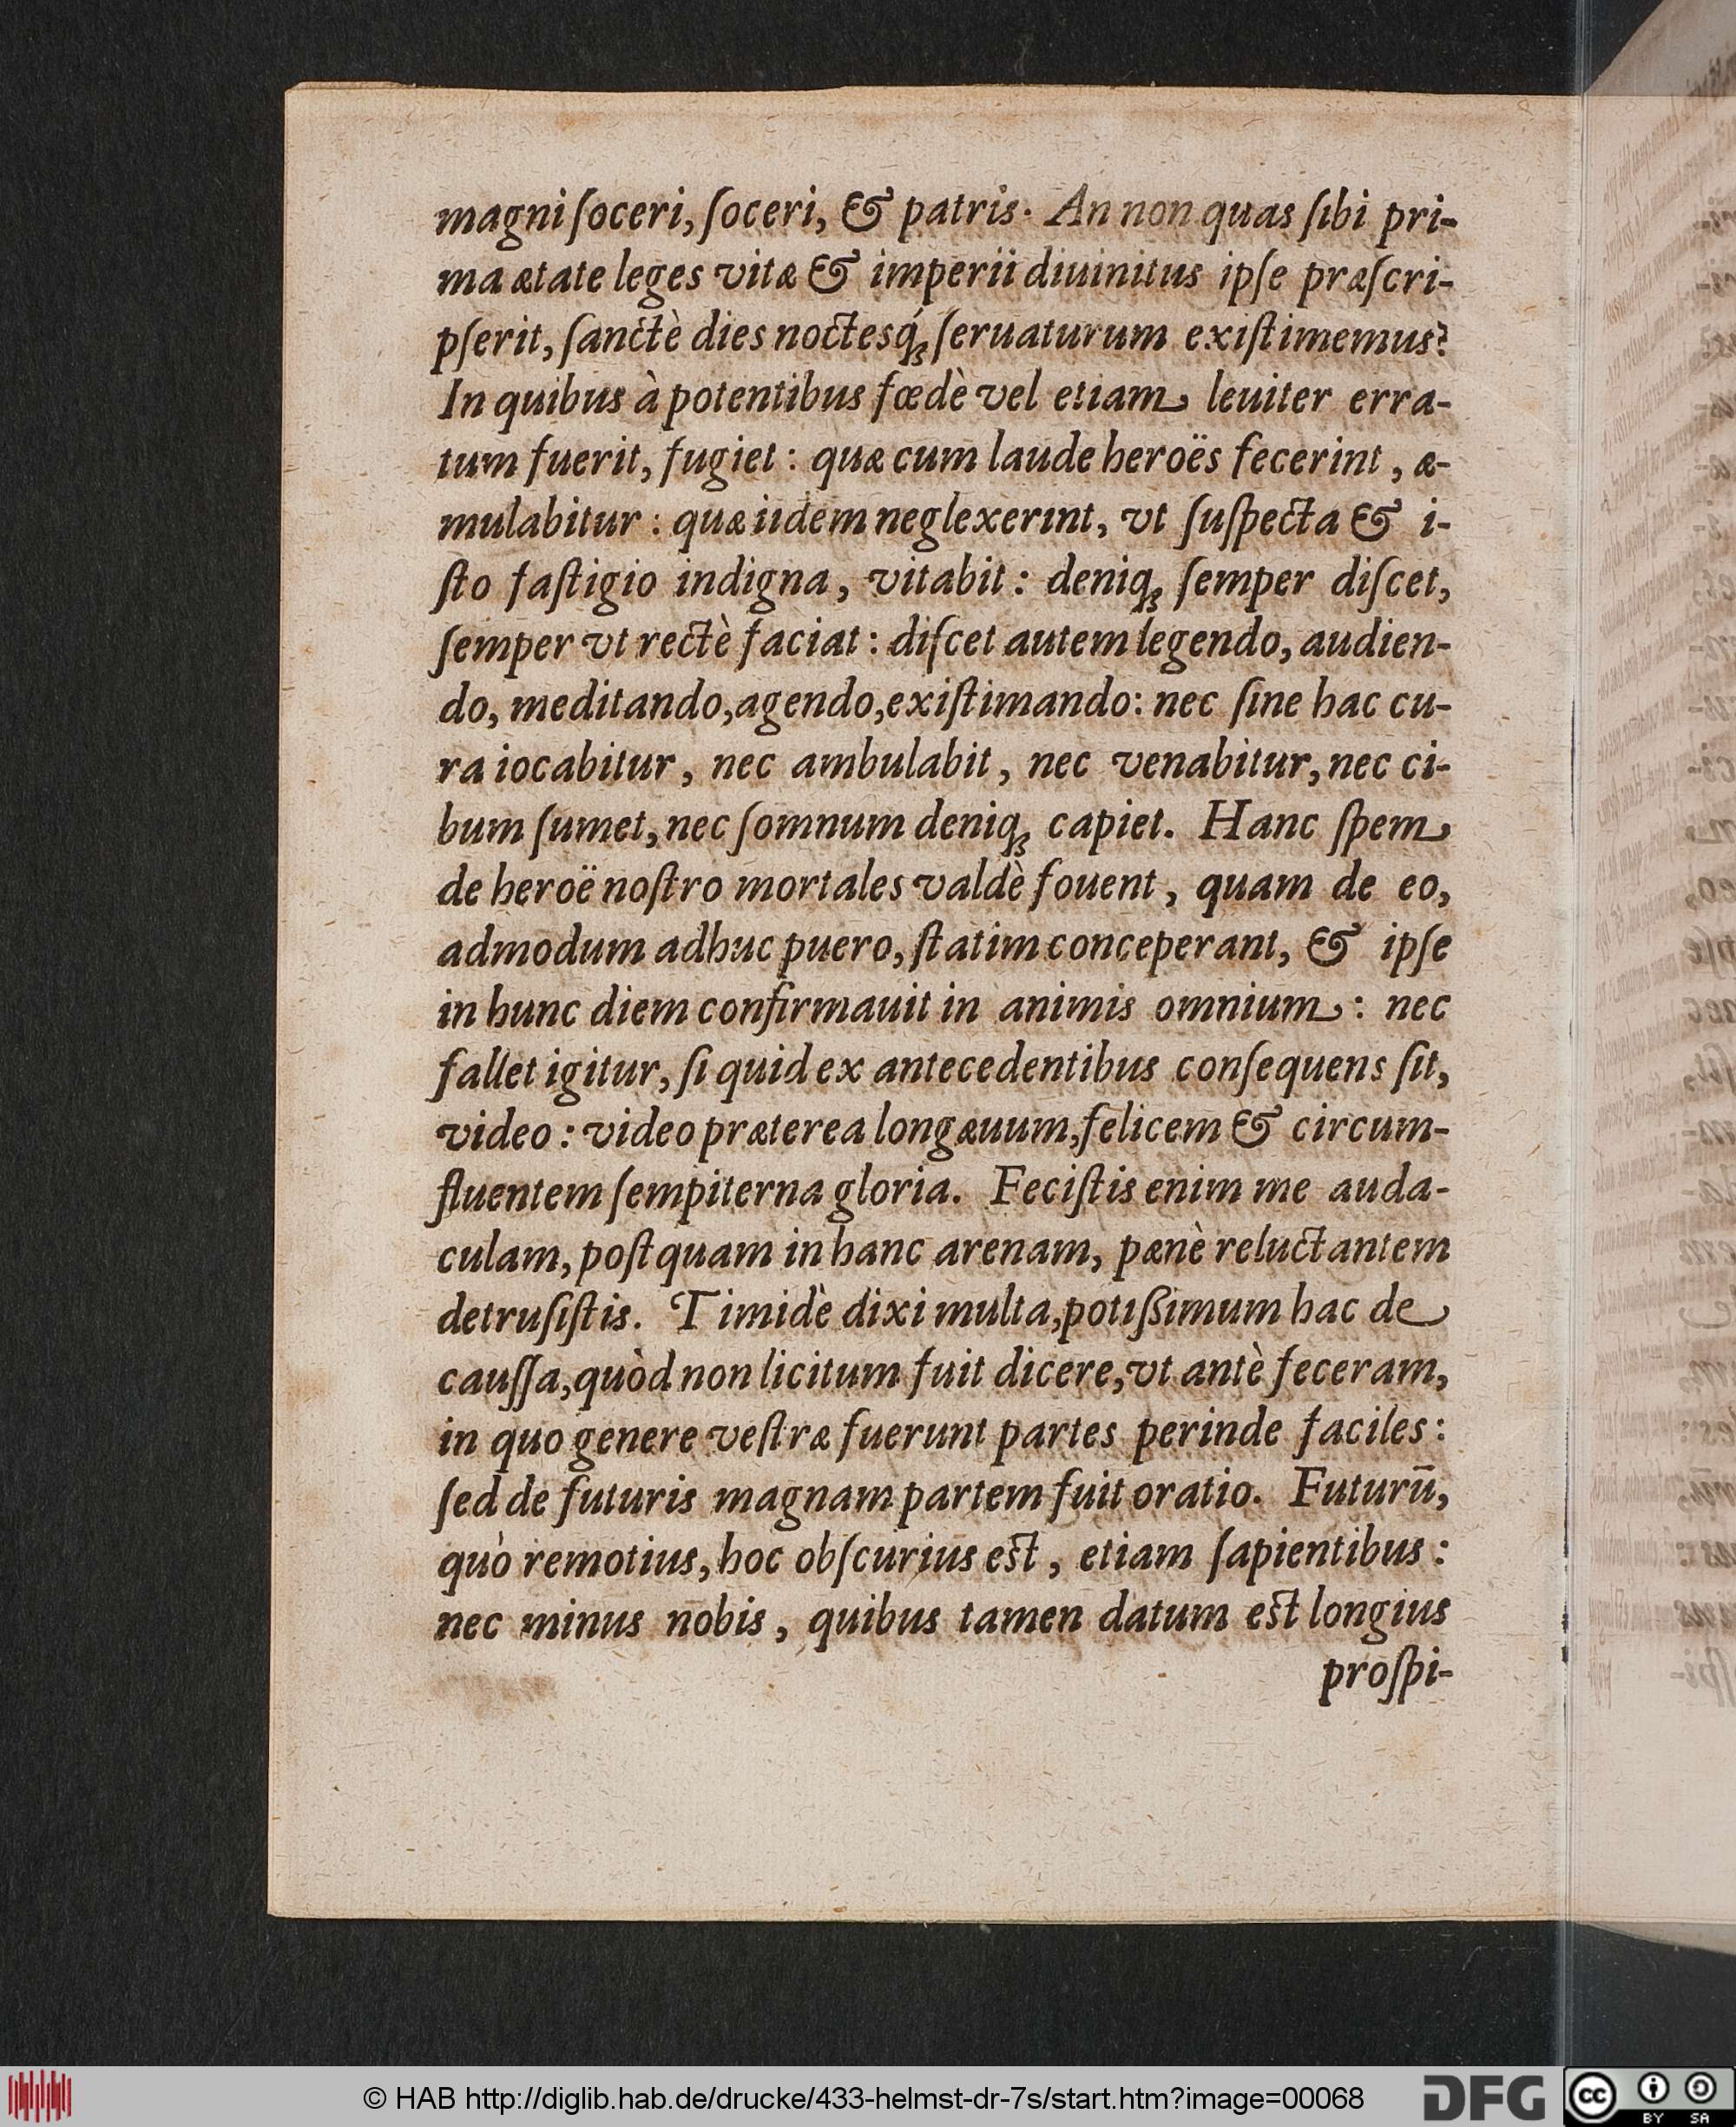 magni ſoceri, ſoceri, & patris. An non quas ſibi pri-
ma ætate leges vitæ & imperii diuinitus ipſe præſcri-
pſerit, ſanctè dies noctesq́ꝫ ſeruaturum exiſtimemus?
In quibus à potentibus fœdè vel etiam leuiter erra-
tum fuerit, fugiet: quæ cum laude heroës fecerint, æ-
mulabitur: quæ iidem neglexerint, vt ſuſpecta & i-
ſto faſtigio indigna, vitabit: deniqꝫ ſemper diſcet,
ſemper vt rectè faciat: diſcet autem legendo, audien-
do, meditando, agendo, exiſtimando: nec ſine hac cu-
ra iocabitur, nec ambulabit, nec venabitur, nec ci-
bum ſumet, nec ſomnum deniqꝫ capiet. Hanc ſpem
de heroë noſtro mortales valdè fouent, quam de eo,
admodum adhuc puero, ſtatim conceperant, & ipſe
in hunc diem confirmauit in animis omnium: nec
fallet igitur, ſi quid ex antecedentibus conſequens ſit,
video: video præterea longæuum, felicem & circum-
fluentem ſempiterna gloria. Feciſtis enim me auda-
culam, poſtquam in hanc arenam, pænè reluctantem
detruſiſtis. Timidè dixi multa, potißimum hac de
cauſſa, quòd non licitum fuit dicere, vt antè feceram,
in quo genere veſtræ fuerunt partes perinde faciles:
ſed de futuris magnam partem fuit oratio. Futurū,
quò remotius, hoc obſcurius est, etiam ſapientibus:
nec minus nobis, quibus tamen datum est longius
proſpi-
© HAB http://diglib.hab.de/drucke/433-helmst-dr-7s/start.htm?image=00068
DFG
cc BY SA